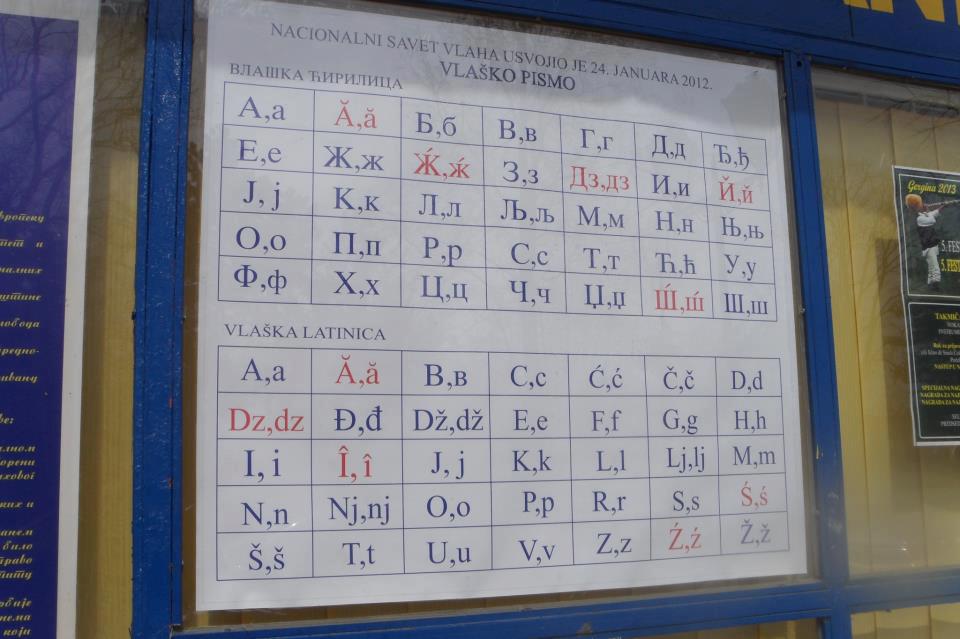 NACIONALNI SAVET VLAHA USVOJIO JE 24. JANUARA 2012.
VLAŠKO PISMO
ВЛАШКА ЋИРИЛИЦА
А,а Ӑ,ӑ Б,б В,в Г,г Д,д Ђ,ђ
Е,е Ж,ж Ж́,ж́ З,з Дз,дз И,и Й,й
Ј, ј К,к Л,л Љ,љ М,м Н,н Њ,њ
О,о П,п Р,р С,с Т,т Ћ,ћ У,у
Ф,ф Х,х Ц,ц Ч,ч Џ,џ Ш́,ш́ Ш,ш
VLAŠKA LATINICA
A,a Ă,ă B,в C,c Ć,ć Č,č D,d
Dz,dz Đ,đ Dž,dž E,e F,f G,g H,h
I, i Î, î J, j K,k L,l Lj,lj M,m
N,n Nj,nj O,o P,p R,r S,s Ś,ś
Š,š T,t U,u V,v Z,z Ź,ź Ž,ž
Gergina 2013
5. FEST
5. FEST